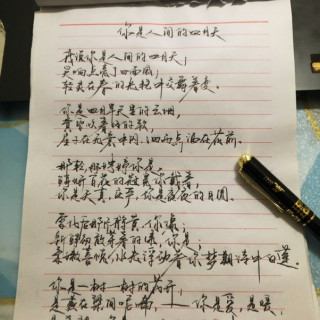 你是人间的四月天
我说你是人间的四月天；
笑响点亮了四面风；
轻灵在春的光艳中交舞着变。
你是四月早天里的云烟，
黄昏吹着风的软，
星子在无意中闪，细雨点洒在花前。
那轻，那娉婷你是，
鲜妍百花的冠冕你戴着，
你是天真，庄严，你是夜夜的月圆。
雪化后那片鹅黄，你像；
新鲜初放芽的绿，你是；
柔嫩喜悦，水光浮动着你梦期待中白莲。
你是一树一树的花开，
是燕在梁间呢喃，——你是爱，是暖，